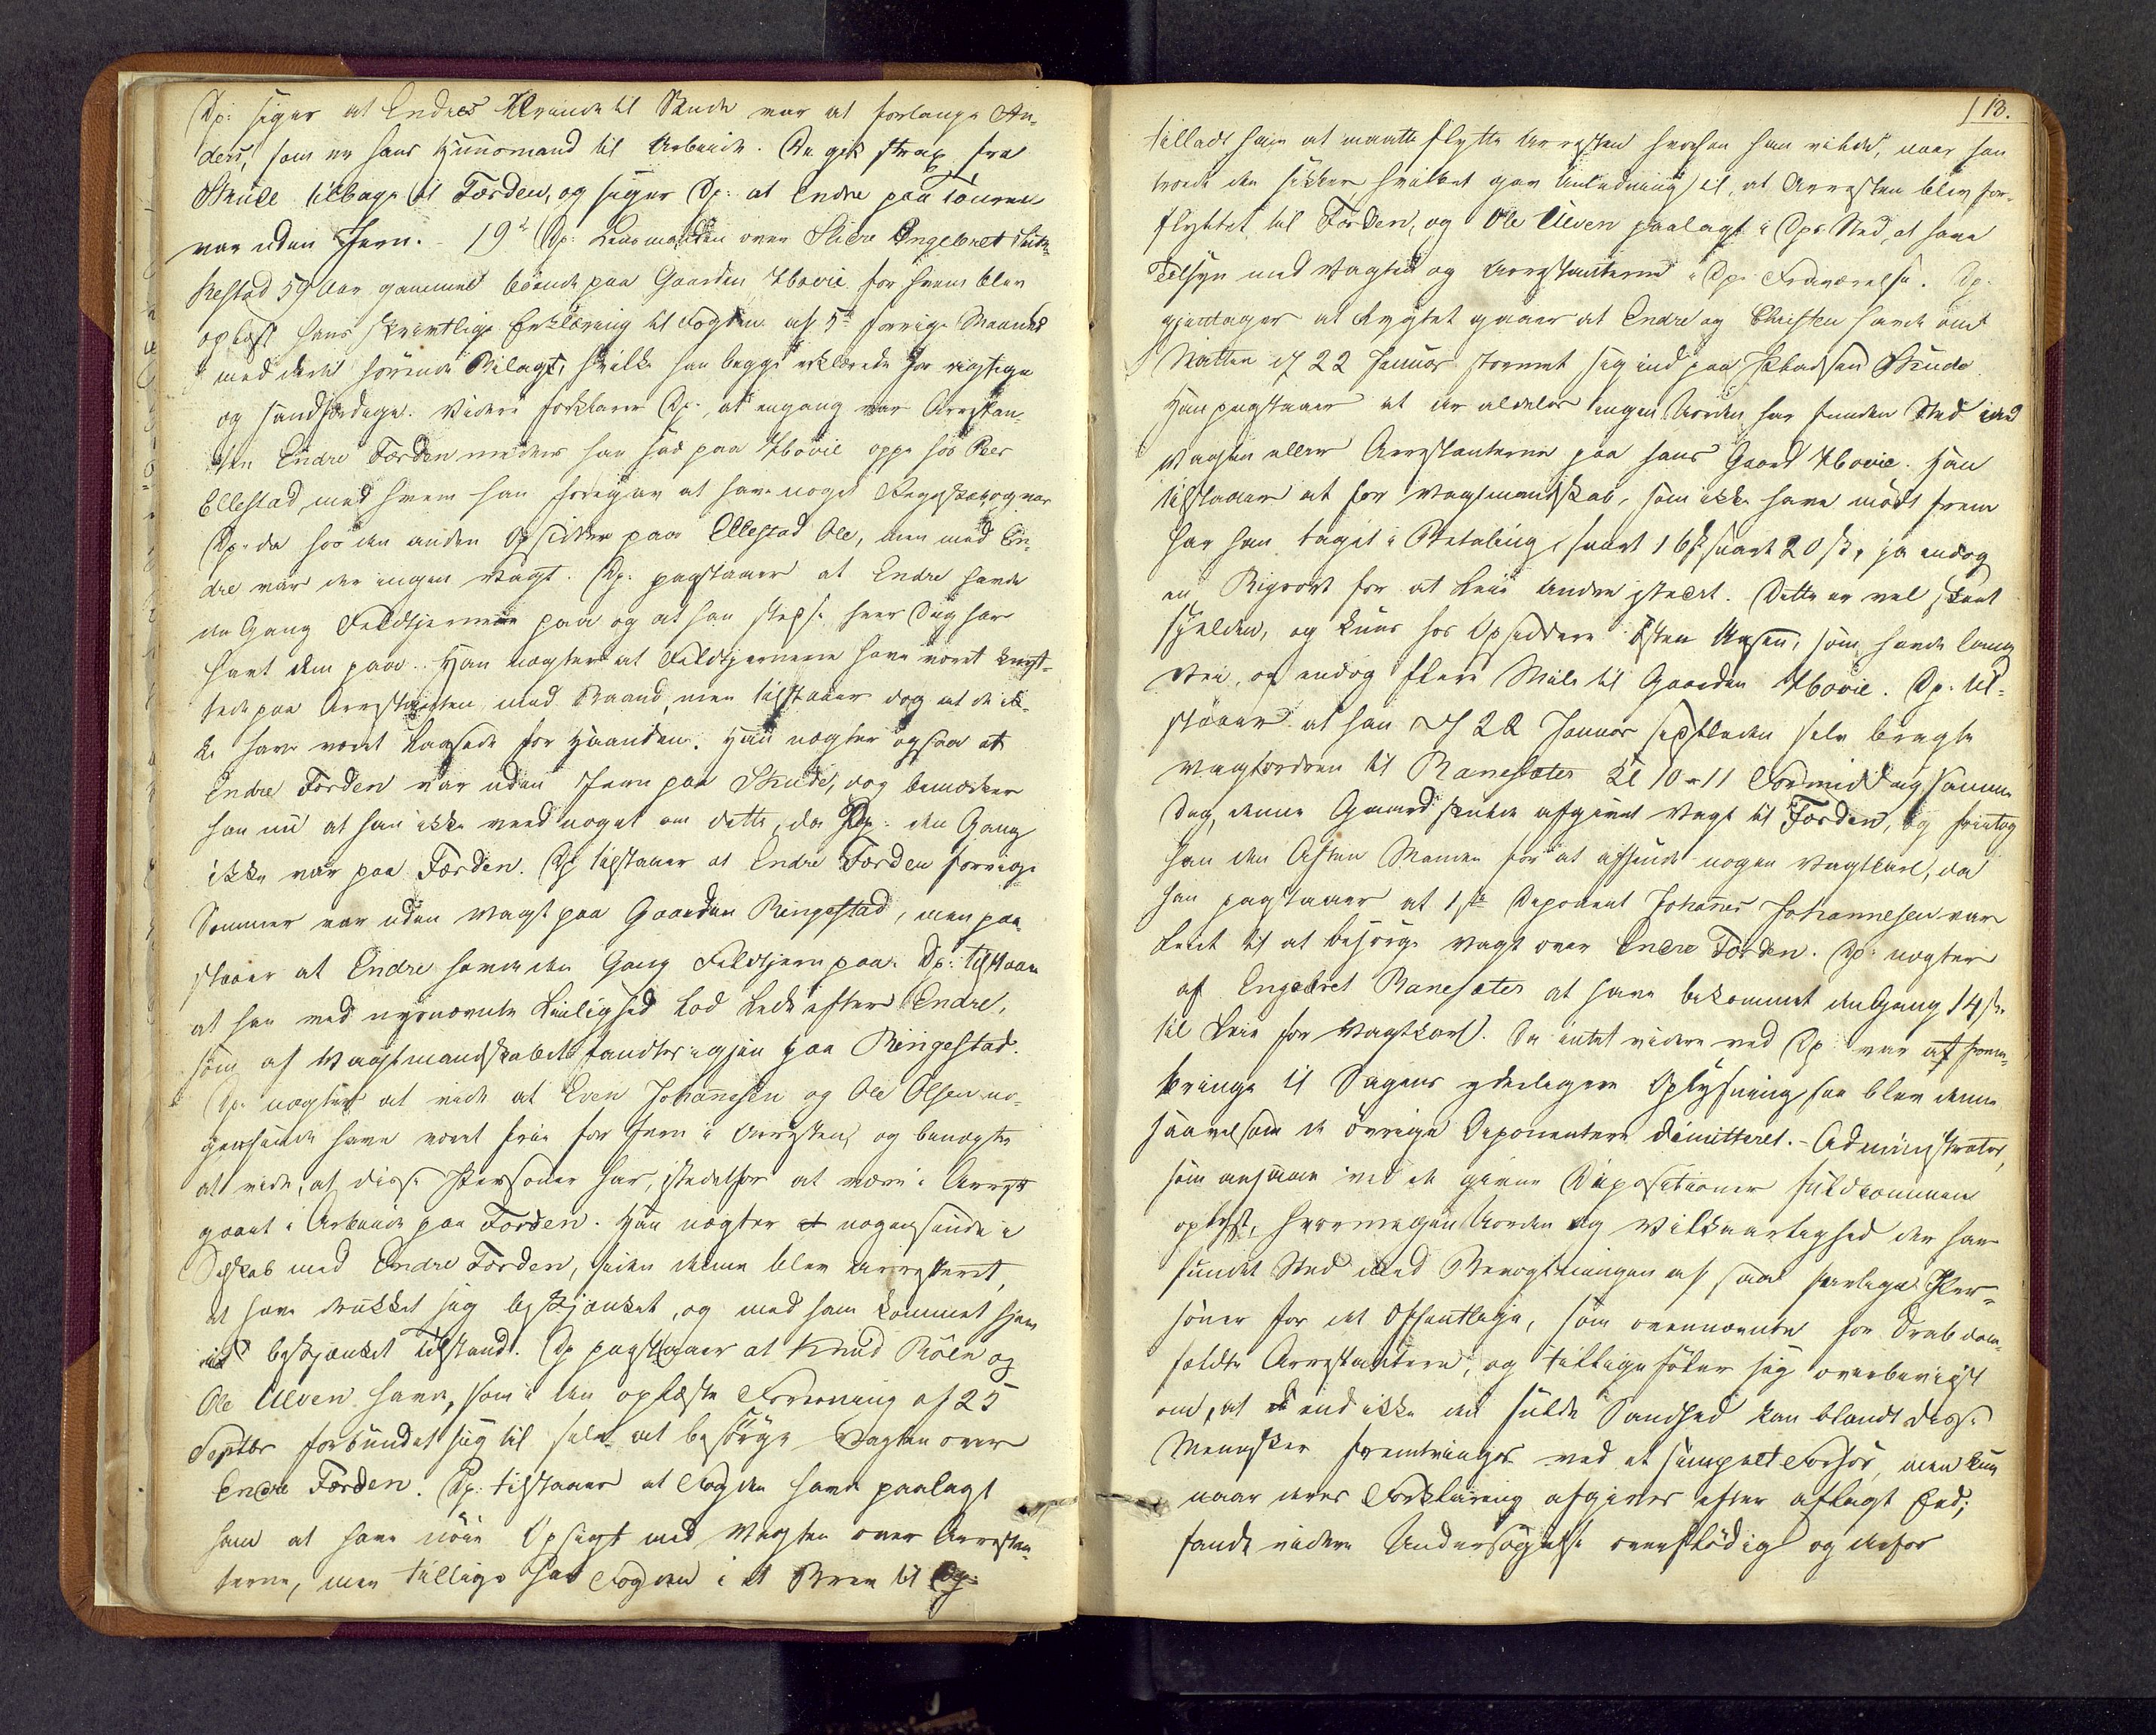 Dp: siger at Endres Ærinde til Skude var at forlange An¬
ders, som er hans Huusmand til Arbeide. De gik strax fra
Skude tilbage til Førden, og siger Dp: at Endre paa Touren
var uden Jern. - 19de Dp: Lensmanden over Slidre Engebret
Hestad 59 Aar gammel boende paa Gaarden Hovie for hvem blev
oplæst hans skrivtlige Erklæring til Fogden af 5te forrige Maaned
med dertil hørende Bilage, hvilke han begge erklærede for rigtige
og sandfærdige. Videre forklarer Dp:, at engang var Arrestan¬
ten Endre Førden medens han sad paa Hovie oppe hos Peer
Ellestad, med hvem han foregav at have noget Regnskab, og var
Dp: da hos den anden Opsidder paa Ellestad Ole, men med En¬
dre var der ingen Vagt. Dp: paastaaer at Endre havde
den Gang Feldtjernene paa og at han stedse hver Dag har
havt dem paa. Han nægter at Feldtjernene have været
fast paa Arrestanten med Baand, men tilstaaer dog at de ik¬
ke have været laasede for Haanden. Han nægter ogsaa at
Endre Førden var uden Jern paa Skude, dog bemærker
han nu at han ikke veed noget om dette, da Dp: den Gang
ikke var paa Førden. Dp: tilstaaer at Endre Førden forrige
Sommer var uden Vagt paa Gaarden Ringestad, men paa¬
staaer at Endre havde den Gang Feldtjern paa. Dp: tilstaaer
at han ved nysnævnte Leilighed lod lede efter Endre,
som af Vagtmandskabet fandtes igjen paa Ringestad.
Dp: nægter at vide at Even Johannesen og Ole Olsen no¬
gensinde have været frie for Jern i Arresten, og benægter
at vide, at disse Personer har, istedetfor at være i Arrest
gaaet i Arbeide paa Førden. Han nægter at nogensinde i
Selskab med Endre Førden, siden denne blev arresteret,
at have drukket sig beskjænket, og med ham kommet hjem
i beskjænket Tilstand. Dp: paastaaer at Knud Röen og
Ole Ulven have, som i den oplæste Erklæring af 25
Septbr forbundet sig til selv at besørge Vagten over
Endre Førden. Dp: tilstaaer at Fogden havde paalagt
ham at have nöie Opsigt med Vagten over Arrestan¬
terne, men tillige har Fogden i et Brev til Dp:
113.
tilladt ham at maatte flytte Arresten hvorhen han vilde, naar han
troede den sikker, hvilket gav Anledning til, at Arresten blev for¬
flyttet til Førden, og Ole Ulven paalagt i Dps Sted, at have
Tilsyn med Vagten og Arrestanterne i Dps Fraværelse. Dp:
gjentager at Rygtet gaaer at Endre og Christen havde om
Natten af 22 Januar stormet sig ind paa Skude.
Han paastaaer at der aldeles ingen Uorden har funden Sted ved
Vagten eller Arrestanterne paa hans Gaard Hovie. Han
tilstaaer at for Vagtmandskab, som ikke have mödt frem
har han taget i Betaling, snart 16 s, snart 20 s, ja endog
en Rigsort for at leie andre isteden. Dette er vel skeet
sjelden, og kuns hos Opsiddere Østen Aasen, som havde lang
Vei, og endog flere Mile til Gaarden Hovie. Dp: til¬
staaer at han af 22 Januar sidstleden selv bragte
Vagtordren til Ranesæter Kl 10 - 11 Formiddag samme
Dag, denne Gaard skulde afgivet Vagt til Førden, og fritog
han den Aften Manden for at afsende nogen Vagtkarl, da
han paastaaer at 1ste Deponent Johannes Johannesen var
leiet til at besørge Vagt over Endre Førden. Dp: nægter
af Engebret Ranesæter at have bekommet den Gang 14 s
til Leie for Vagtkarl. Da intet videre ved Dp: var at frem¬
bringe til Sagens yderligere Oplysning, saa blev denne
saavelsom de övrige Deponentere dimitteret. - Administrator,
som ansaae ved de givne Depositioner fuldkommen
oplyst, hvormegen Uorden og Vilkaarlighed der har
fundet Sted med Bevogtningen af saa farlige Per¬
soner for det Offentlige, som ovennævnte for Drab dom¬
fældte Arrestantere, og tillige föler sig overbeviist
om, at end ikke den fulde Sandhed kan blandt disse
Mennesker frembringes ved et simpelt Forhör, men kun
naar deres Forklaring afgives efter aflagt Eed;
fandt videre Undersøgelse overflödig og derfor